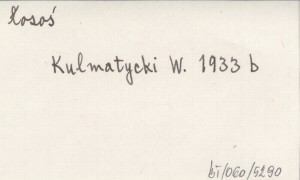 Łosoś
Kulmatycki W. 1933 b
bi/060/5290